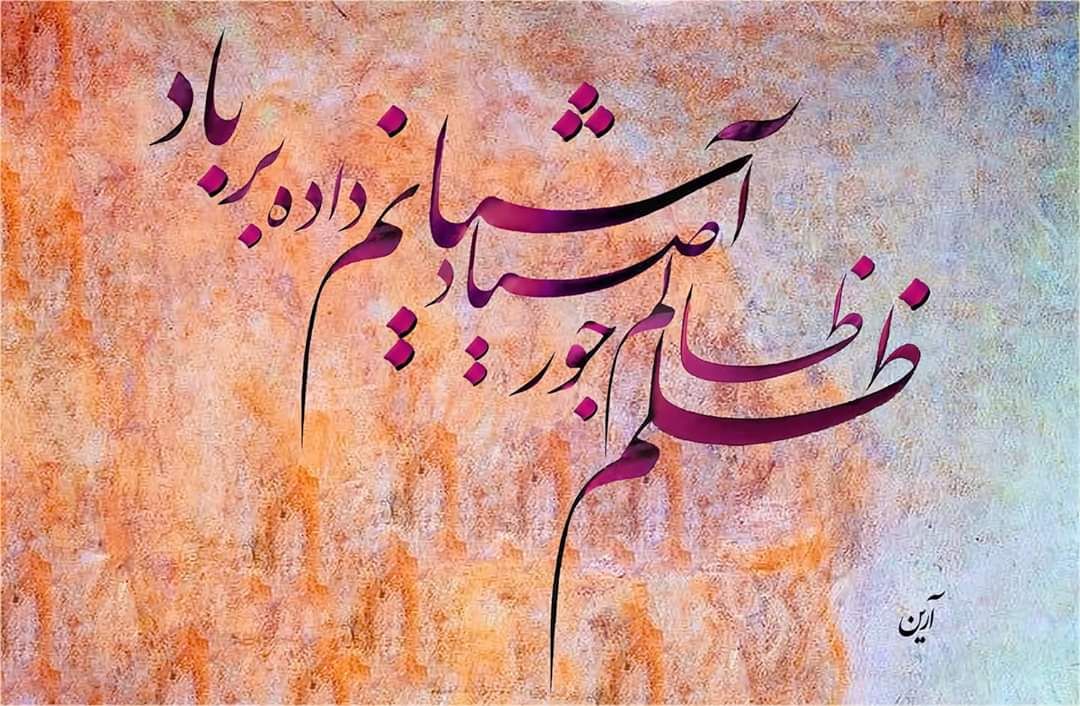 ظلم ظالم جور صیاد
آشیانم داده بر باد
آرین